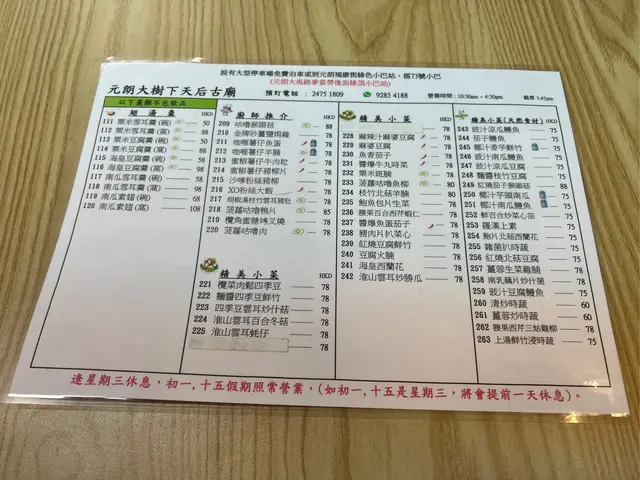 設有大型停車場免費泊車或到元朗福康街綠色小巴站，搭73號小巴
(元朗大馬路麥當勞後面綠頂小巴站)
元朗大樹下天后古廟
預訂電話： 2475 1809 9285 4188 營業時間：10:30am – 4:30pm 截單 3:45pm
以下羹類不包飲品
翅湯羹 HKD
111 粟米雪耳羹(碗) 50
112 粟米雪耳羹(窩) 88
113 粟米豆腐羹(碗) 50
114 粟米豆腐羹(窩) 88
115 海皇豆腐羹(碗) 58
116 海皇豆腐羹(窩) 98
117 南瓜雪耳羹(碗) 58
118 南瓜雪耳羹(窩) 98
119 南瓜素翅(碗) 68
120 南瓜素翅(窩) 108
廚師推介 HKD
209 咕嚕猴頭菇 88
210 金牌砂薑鹽焗雞 78
211 咖喱薯仔魚蛋 78
212 咖喱薯仔羊腩 78
213 蜜椒薯仔牛肉粒 78
214 蜜椒薯仔豬柳片 78
215 沙嗲粉絲豬柳 78
216 XO粉絲大蝦 78
217 胡椒湯枝竹雲耳豬肚 78
218 菠蘿咕嚕鴨片 85
219 欖角蜜糖烤叉燒 78
220 菠蘿咕嚕肉 78
精美小菜 HKD
221 欖菜肉鬆四季豆 78
222 麵醬四季豆鮮竹 78
223 四季豆雲耳炒什菇 78
224 淮山雲耳百合冬菇 78
225 淮山雲耳蚝仔 78
78
精美小菜 HKD
228 麻辣汁麻婆豆腐 78
229 麻婆豆腐 78
230 魚香茄子 78
231 醬爆牛丸時菜 78
232 粟米斑腩 78
233 菠蘿咕嚕魚柳 80
234 枝竹北菇羊腩 80
235 鮑魚包片生菜 78
236 腰果百合西芹蝦仁 78
237 醬爆魚蛋茄子 78
238 豬肉片扒菜心 78
239 紅燒豆腐鮮竹 78
240 豆腐火腩 78
241 海皇西蘭花 78
242 淮山雲耳炒勝瓜 78
精美小菜(天然食材) HKD
243 豉汁涼瓜鱔魚 75
244 茄子鱔魚 75
245 椰汁小芋鮮竹 75
246 豉汁南瓜鱔魚 75
247 豉汁涼瓜豆腐 75
248 麵醬枝竹豆腐 75
249 紅燒茄子猴頭菇 88
250 椰汁芋頭南瓜 75
251 椰汁南瓜鱔魚 75
252 鮮百合炒菜心苗 75
253 羅漢上素 75
254 鮑片北菇西蘭花 75
255 雜菌扒時蔬 75
256 紅燒北菇豆腐 75
257 薑蓉生菜雞腩 78
258 南乳藕片炒什菌 78
259 豉汁豆腐鱔魚 75
260 清炒時蔬 60
261 薑蓉炒時蔬 60
262 腰果西芹三姑雞柳 78
263 上湯鮮竹浸時蔬 75
逢星期三休息，初一，十五假期照常營業，(如初一，十五是星期三，將會提前一天休息)。